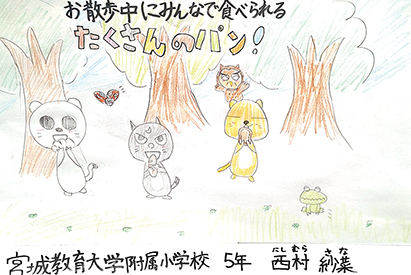 お散歩中にみんなで食べられる
たくさんのパン!
宮城教育大学附属小学校 5年 西村 紗菜
にし むら さ な